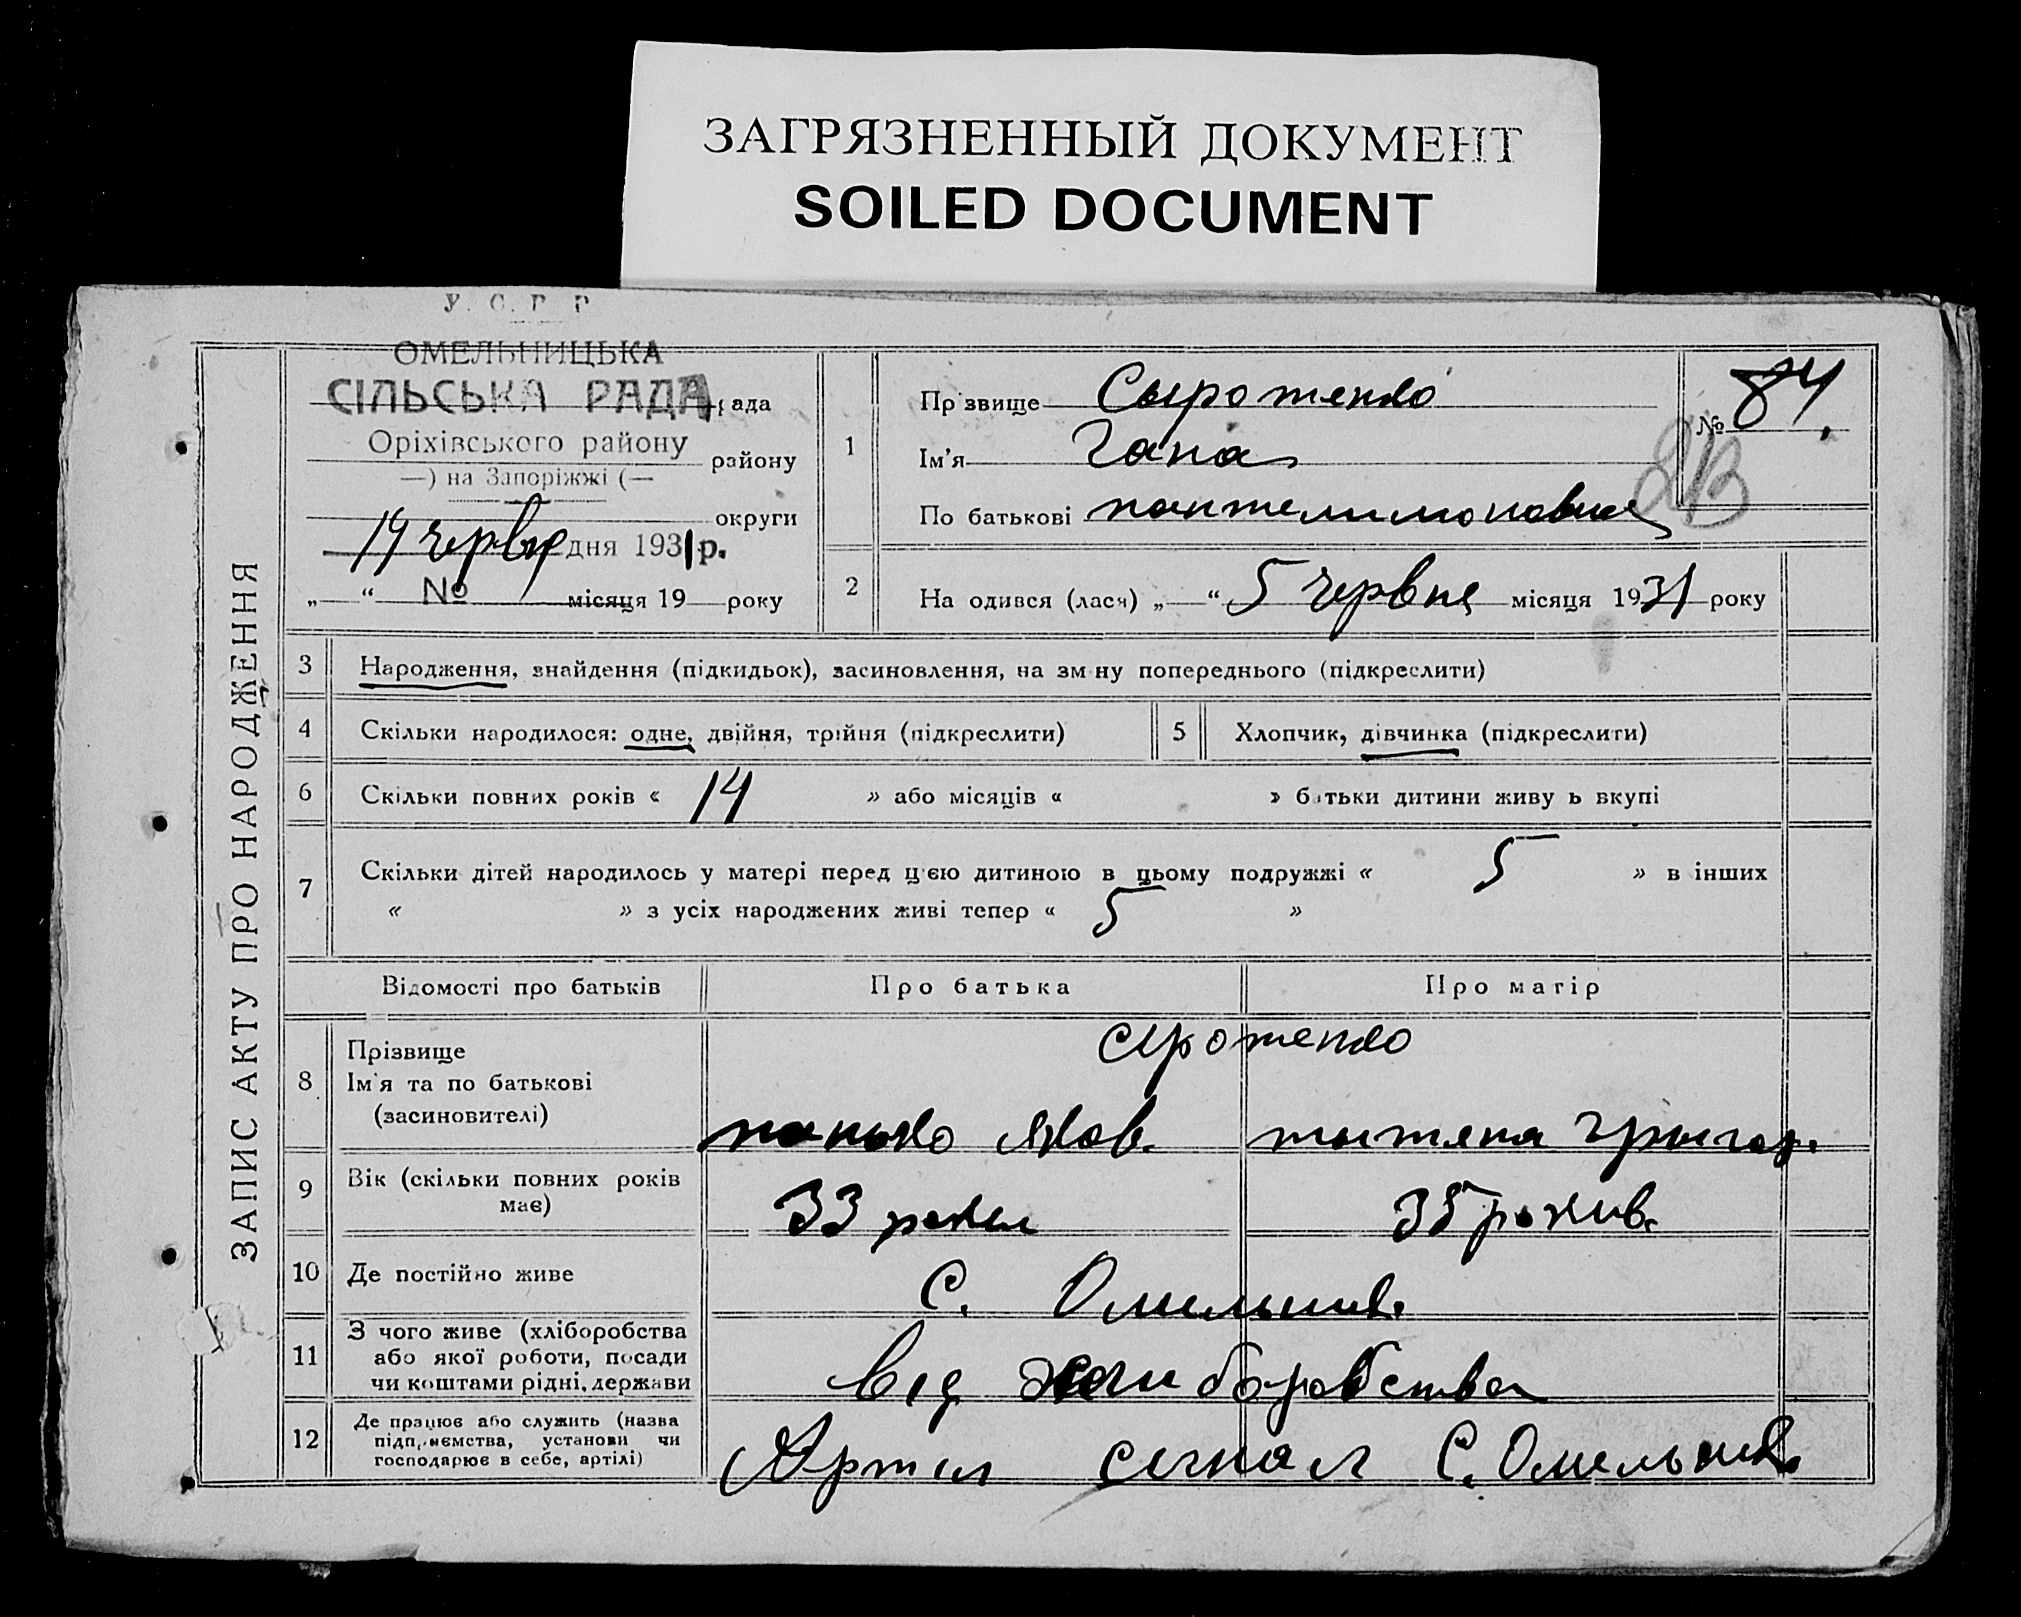 ЗАГРЯЗНЕННЫЙ ДОКУМЕНТ
SOILED DOCUMENT
У. С. Р. Р
ОМЕЛЬНИЦЬКА
СІЛЬСЬКА РАДА рада
Оріхівського району району
—) на Запоріжжі (—
округи
14 червня дня 1931 р.
„ “ № місяця 19 року
ЗАПИС АКТУ ПРО НАРОДЖЕННЯ
1
Прізвище Сыротенко
Ім’я Гана
По батькові пантелимоновна
№ 84.
2 На одився (лася) „ “ 5 червня місяця 1931 року
3 Народження, знайдення (підкидьок), засиновлення, на зм ну попереднього (підкреслити)
4 Скільки народилося: одне, двійня, трійня (підкреслити)
5 Хлопчик, дівчинка (підкреслити)
6 Скільки повних років « 14 » або місяців « » батьки дитини живу ь вкупі
7 Скільки дітей народилось у матері перед цією дитиною в цьому подружжі « 5 » в інших
« » з усіх народжених живі тепер « 5 »
Відомості про батьків Про батька Про матір
8 Прізвище
Ім’я та по батькові
(засиновителі)
сиротенко
панько Яков. тытяна Грыгор.
9 Вік (скільки повних років
має)
33 роки 35 рокив.
10 Де постійно живе С. Омельник.
11 З чого живе (хліборобства
або якої роботи, посади
чи коштами рідні, держави
від хлиборобства
12 Де працює або служить (назва
підприємства, установи чи
господарює в себе, артілі)
Артіл сигнал С. Омельник.